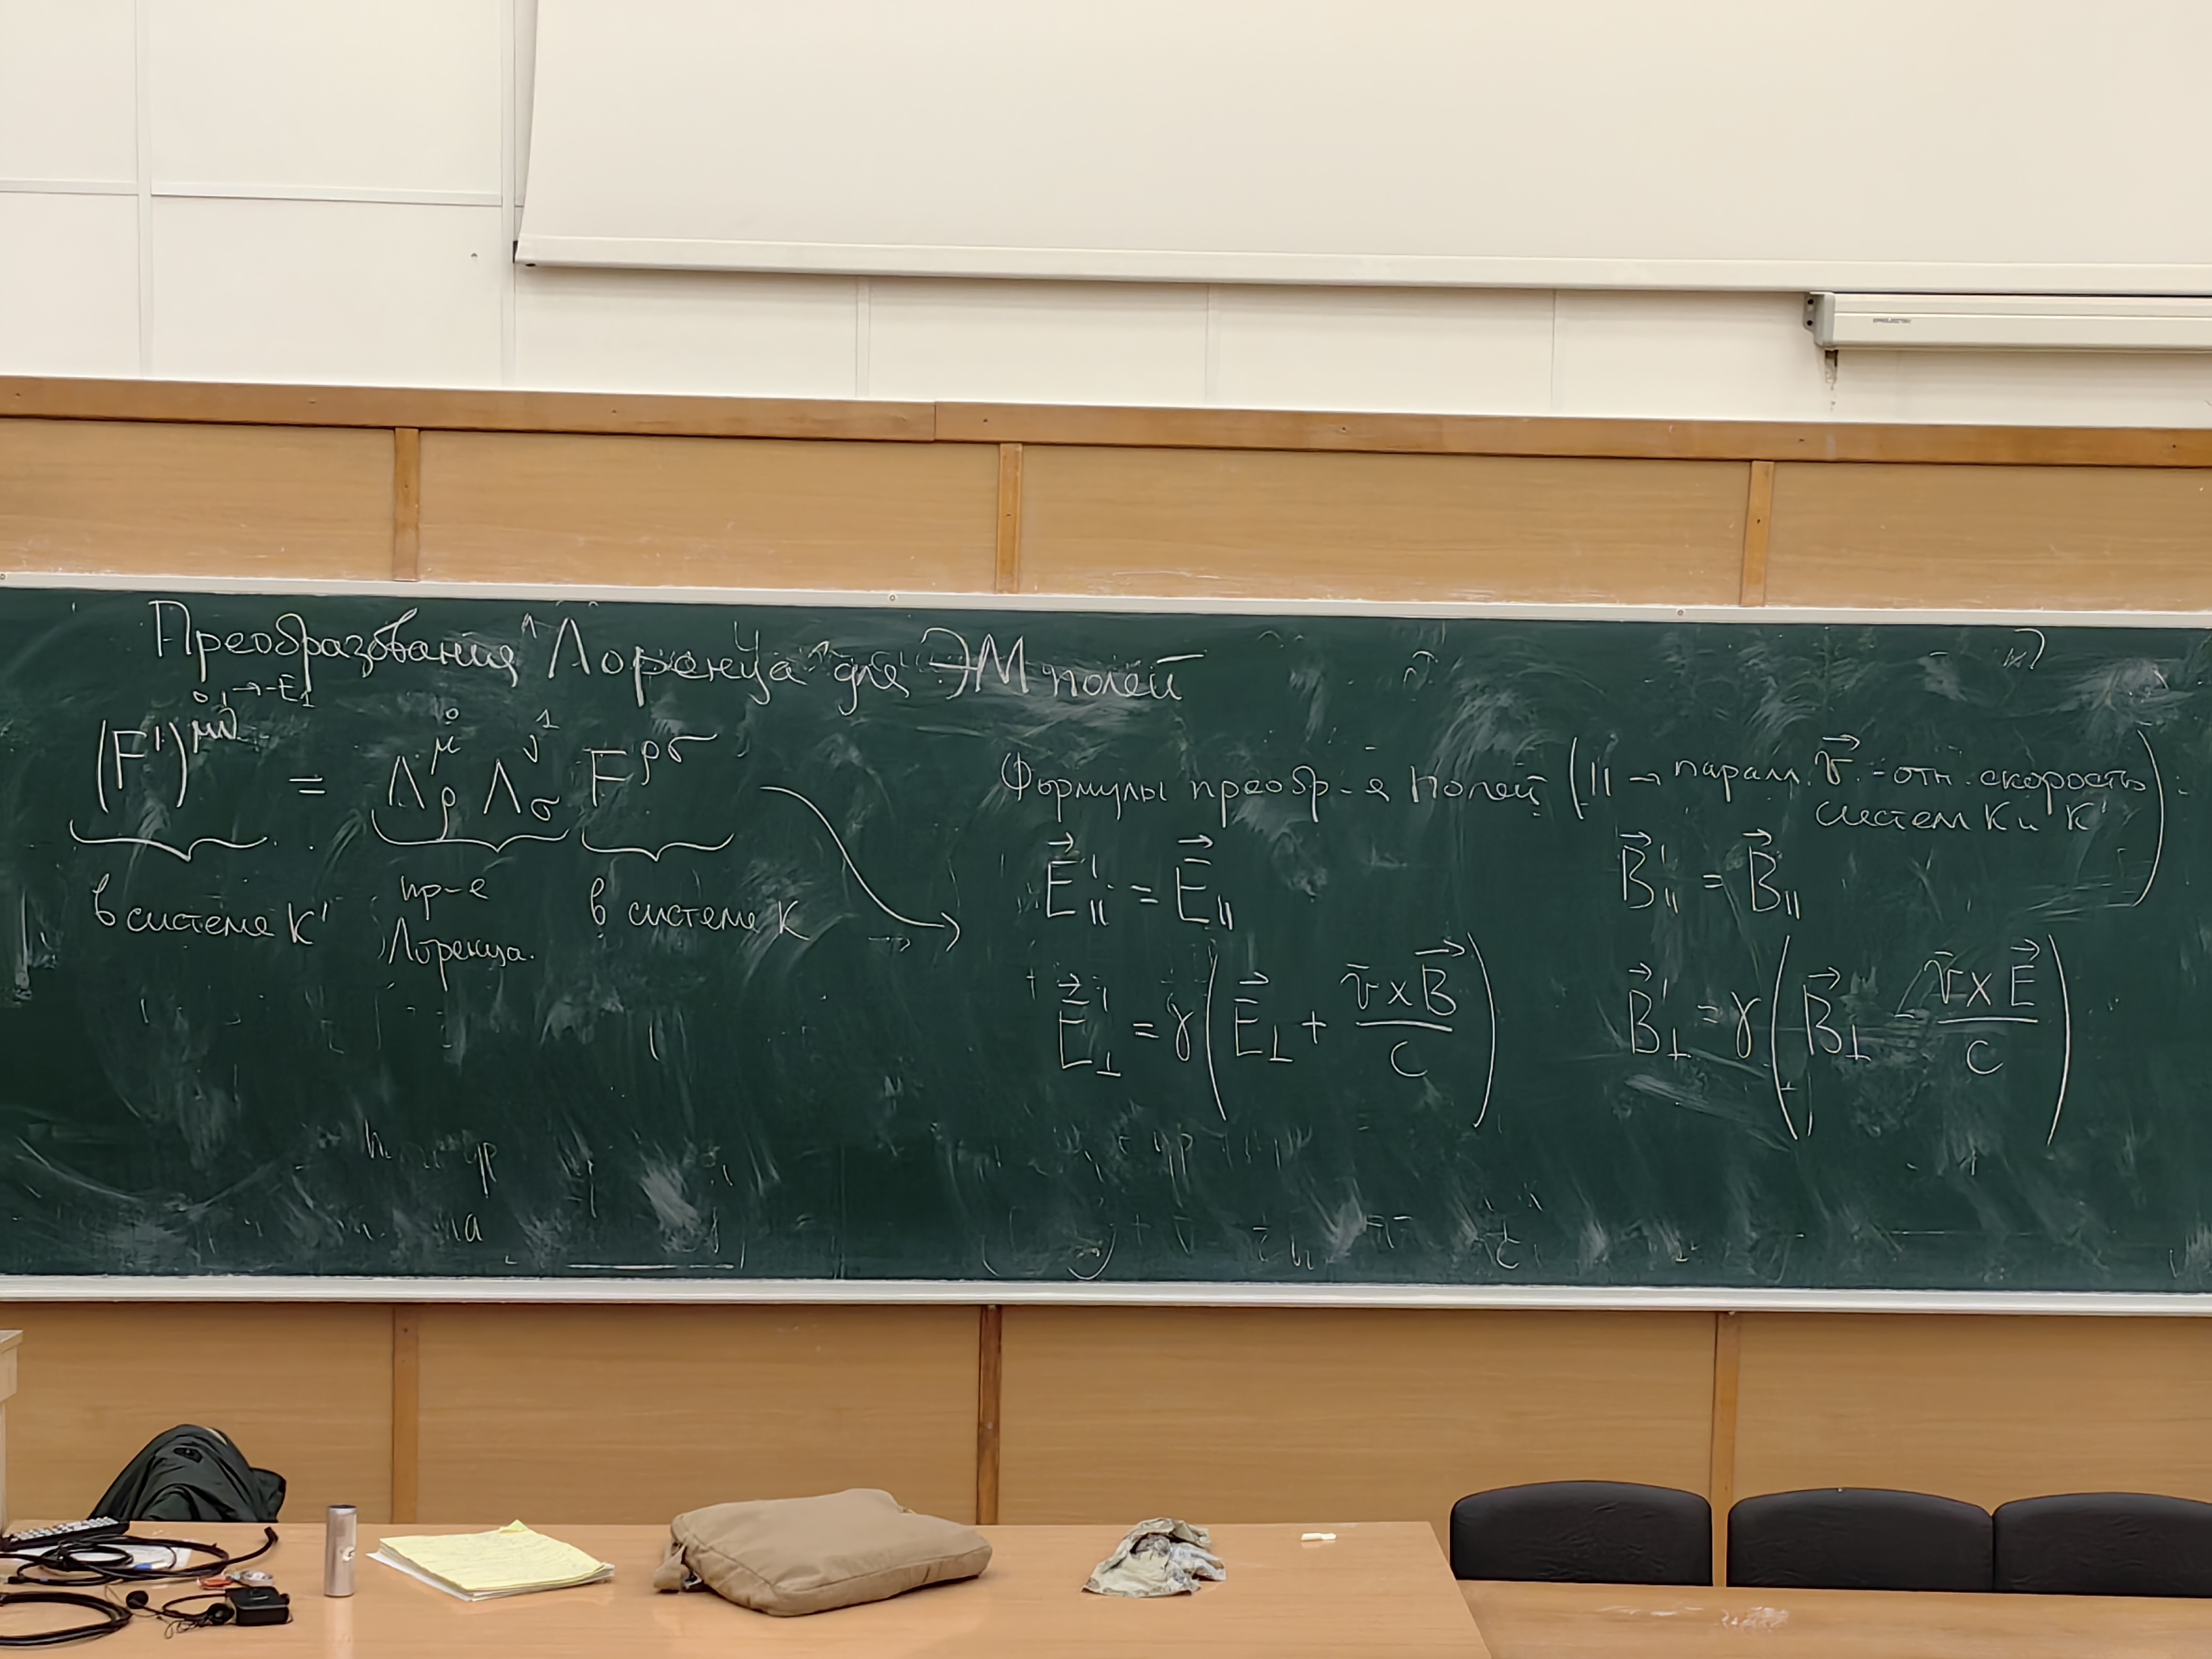 Преобразования Лоренца для ЭМ полей
01 → -E₁
(F')^{μν} = Λ^μ_ρ Λ^ν_σ F^{ρσ}
0 1
в системе K' пр-е Лоренца. в системе K
Формулы преобр-я полей (|| → паралл. v⃗ - отн. скорость
систем K и K')
E⃗'_{||} = E⃗_{||} B⃗'_{||} = B⃗_{||}
E⃗'_⊥ = γ(E⃗_⊥ + (v̄ × B⃗)/c) B⃗'_⊥ = γ(B⃗_⊥ - (v̄ × E⃗)/c)